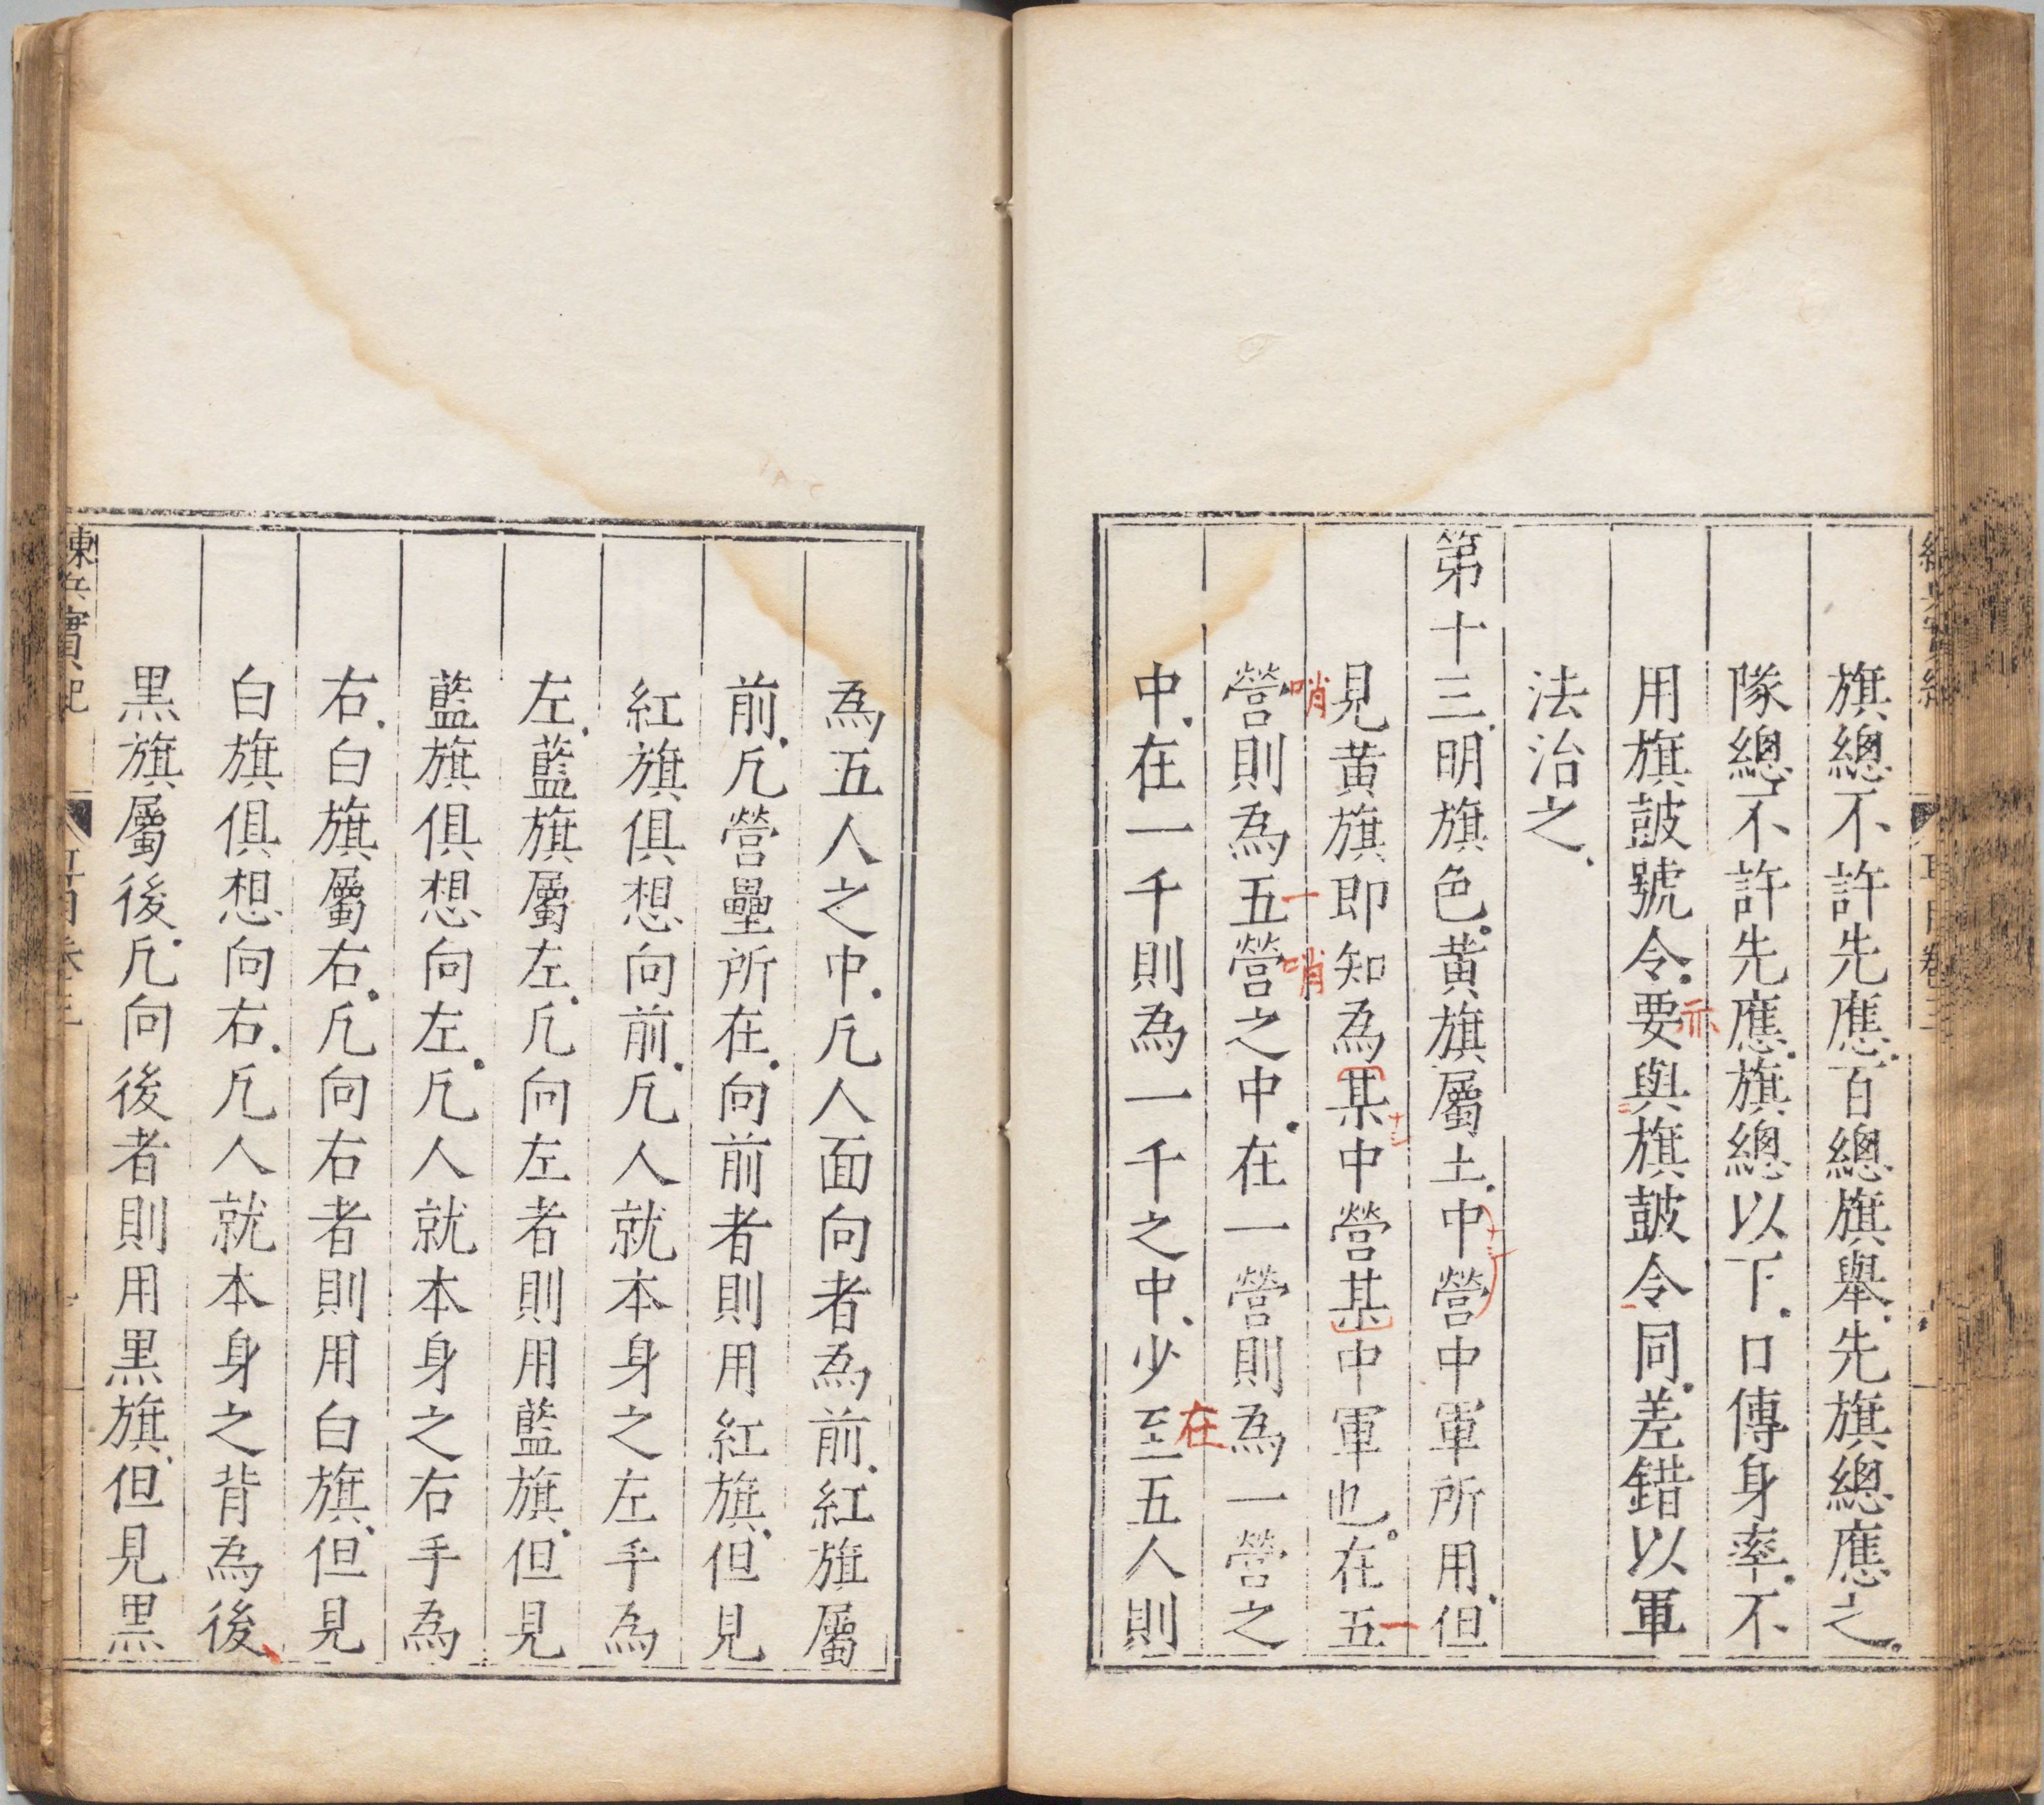 旗總不許先應百總旗舉先旗總應之
隊總不許先應旗總以下口傳身率不
用旗皷號令要與旗皷令同差錯以軍
亦
法治之
第十三明旗色黃旗屬土中營中軍所用但
見黃旗即知為某中營某中軍也在五
一
哨
一
哨
營則為五營之中在一營則為一營之
在
中在一千則為一千之中少至五人則
為五人之中凢人面向者為前紅旗屬
前凢營壘所在向前者則用紅旗但見
紅旗俱想向前凢人就本身之左手為
左藍旗屬左凢向左者則用藍旗但見
藍旗俱想向左凢人就本身之右手為
右白旗屬右凢向右者則用白旗但見
白旗俱想向右凢人就本身之背為後
黑旗屬後凢向後者則用黑旗但見黑